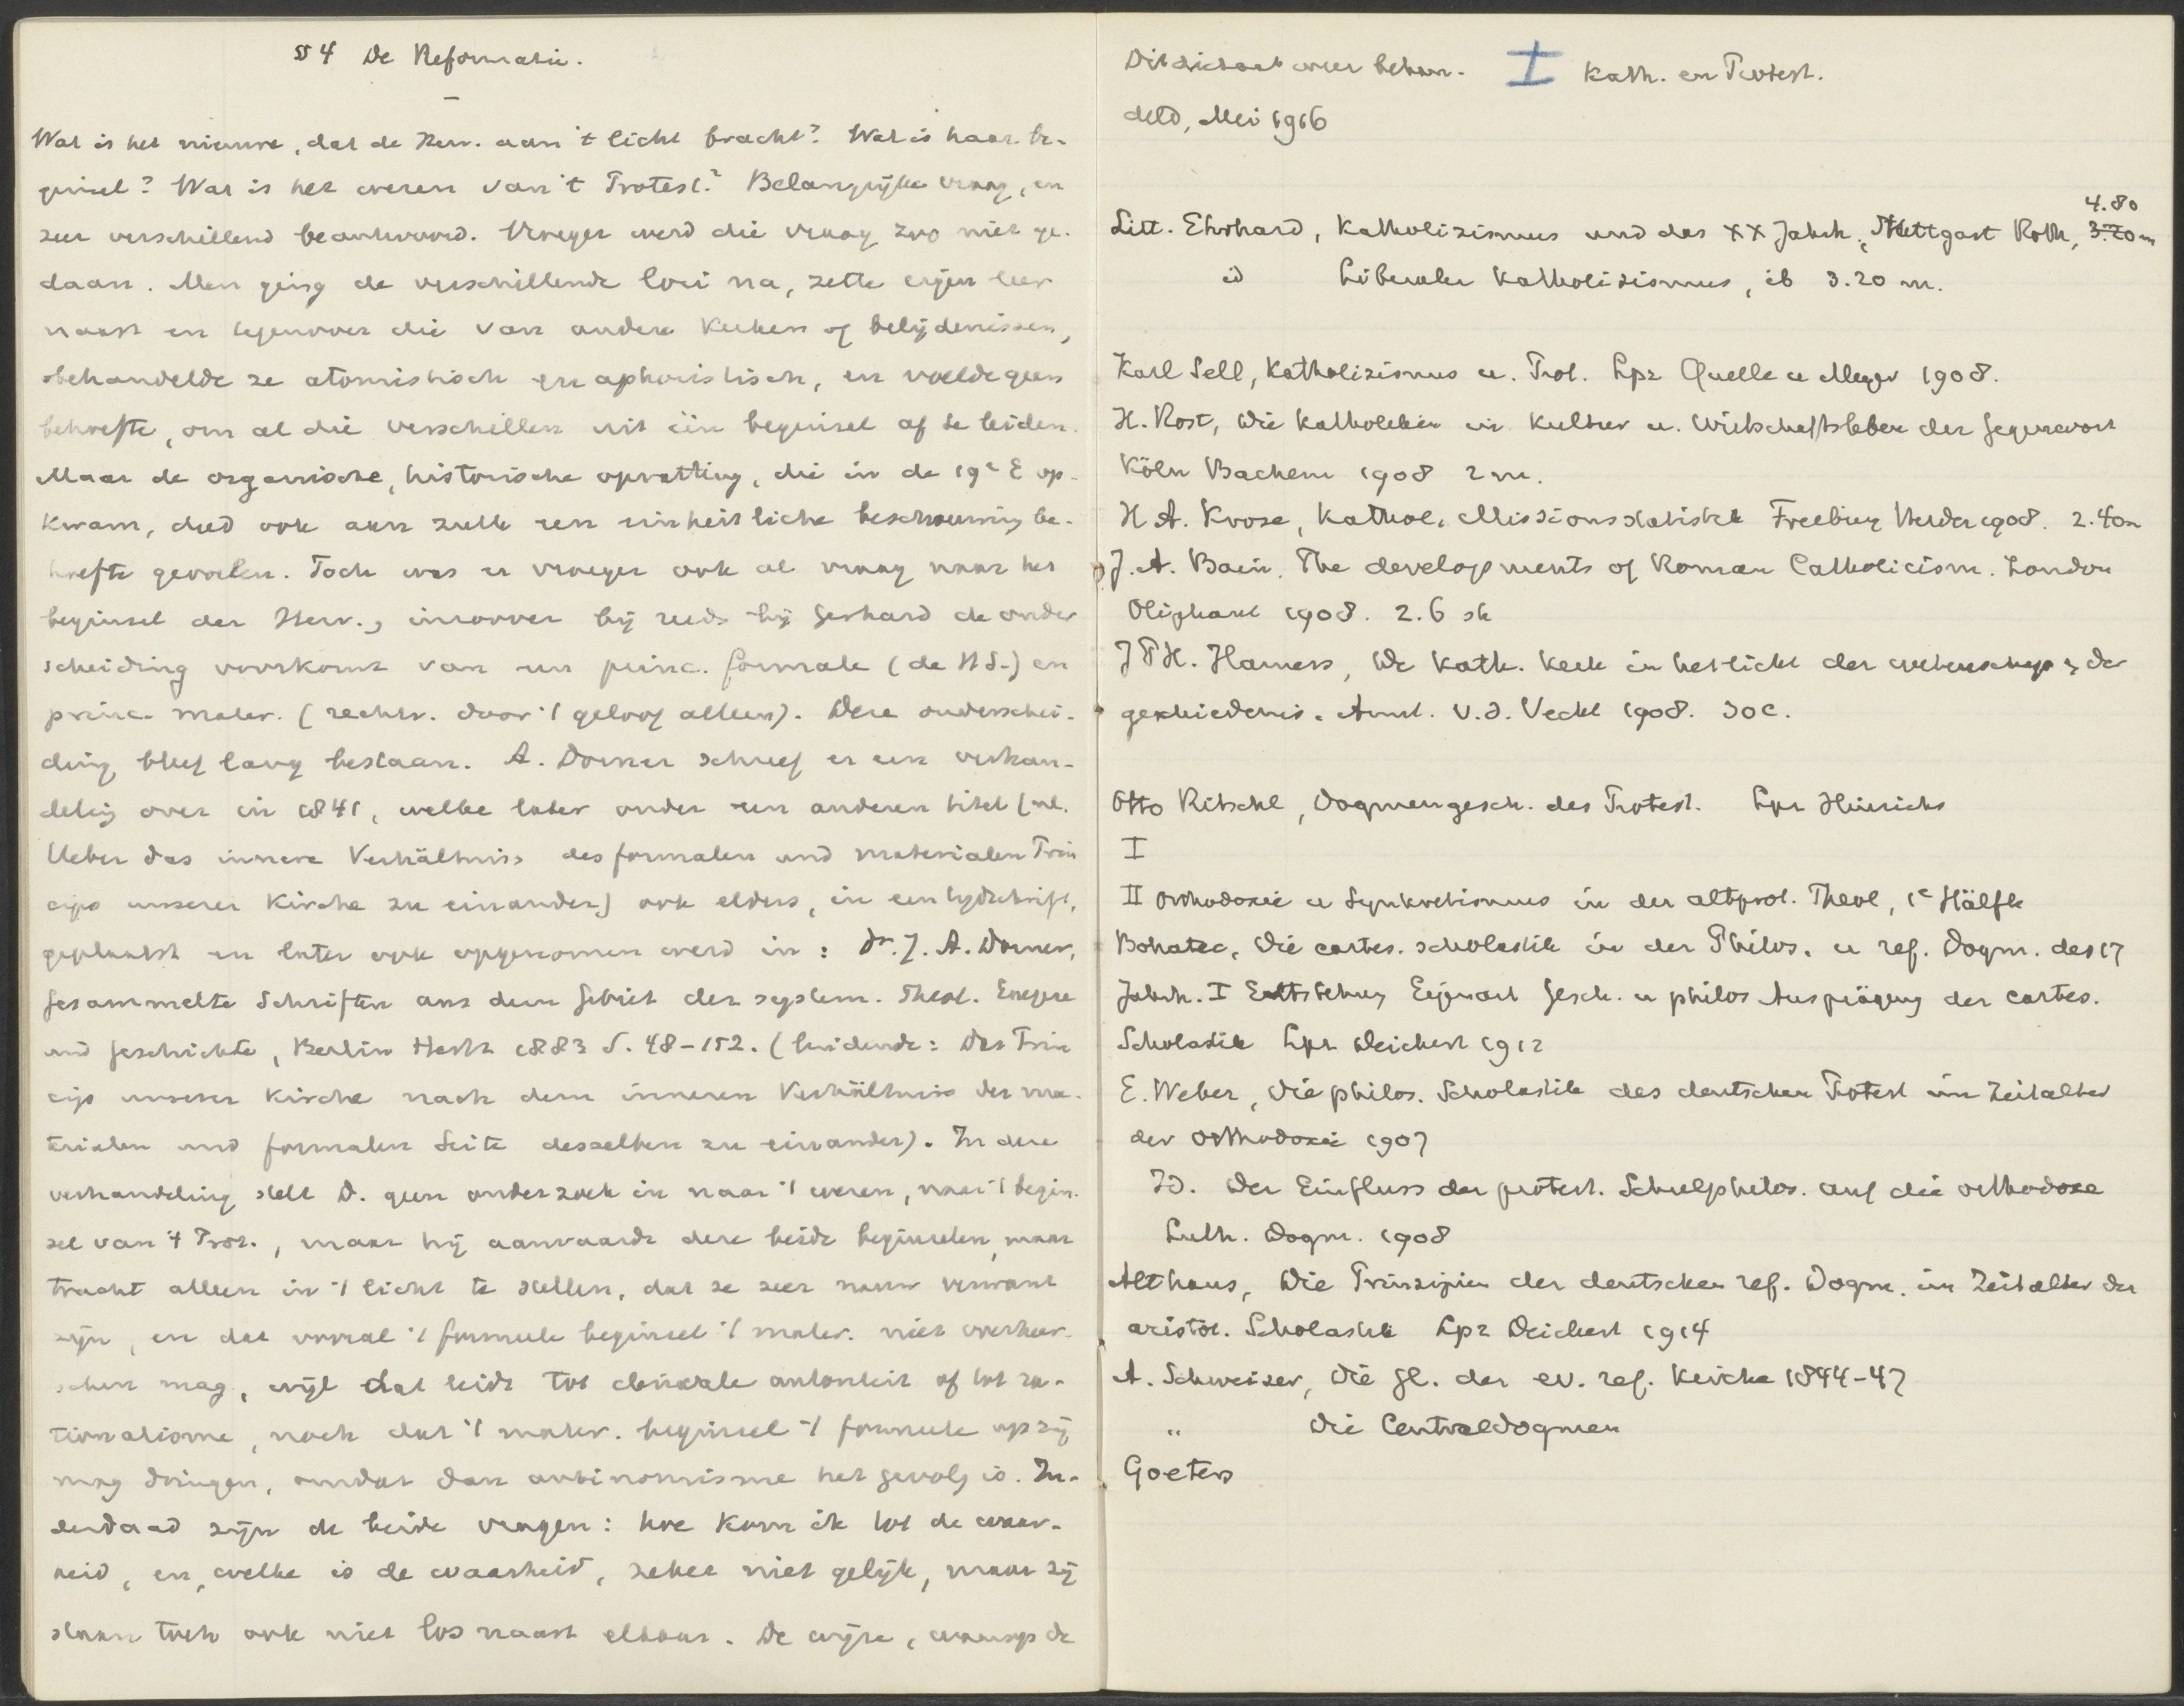 § 4 De Reformatie.
Wat is het nieuwe, dat de Herv. aan 't licht bracht? Wat is haar be-
ginsel? Wat is het wezen van 't Protest.? Belangrijke vraag, en
zeer verschillend beantwoord. Vroeger werd die vraag zoo niet ge-
daan. Men ging de verschillende loci na, zette eigen leer
naast en tegenover die van andere kerken of belijdenissen,
behandelde ze atomistisch en aphoristisch, en voelde geen
behoefte, om al die verschillen uit één beginsel af te leiden.
Maar de organische, historische opvatting, die in de 19e E op-
kwam, deed ook aan zulk een einheitliche beschouwing be-
hoefte gevoelen. Toch was er vroeger ook al vraag naar het
beginsel der Herv., inzoover bij reeds bij Gerhard de onder
scheiding voorkomt van een princ. formale (de HS.) en
princ. mater. (rechtv. door 't geloof alleen). Deze onderschei-
ding bleef lang bestaan. A. Dorner schreef er een verhan-
deling over in 1841, welke later onder een anderen titel (nl.
Ueber das innere Verhältniss des formalen und materialen Prin
cips unserer Kirche zu einander) ook elders, in een tijdschrift,
geplaatst en later ook opgenomen werd in: Dr. J. A. Dorner,
Gesammelte Schriften aus dem Gebiet der system. Theol. Exegese
und Geschichte, Berlin Hertz 1883 S. 48-152. (luidende: Das Prin
cip unserer Kirche nach dem inneren Verhältniss der ma-
terialen und formalen Seite desselben zu einander). In deze
verhandeling stelt D. geen onderzoek in naar 't wezen, naar 't begin-
sel van 't Prot., maar hij aanvaardt deze beide beginselen, maar
tracht alleen in 't licht te stellen, dat ze zeer nauw verwant
zijn, en dat vooral 't formeele beginsel 't mater. niet overheer-
schen mag, wijl dat leidt tot doode autoriteit of tot ra-
tionalisme, noch dat 't mater. beginsel 't formeele op zij
mag dringen, omdat dan antinomisme het gevolg is. In-
derdaad zijn de beide vragen: hoe kom ik tot de waar-
heid, en, welke is de waarheid, zeker niet gelijk, maar zij
staan toch ook niet los naast elkaar. De wijze, waarop de
Dit dictaat weer behan- I Kath. en Protest.
deld, Mei 1916
4.80
Litt. Ehrhard, Katholizismus und das XX Jahrh., Stuttgart Roth, 3.20 m
id Liberaler Katholizismus, ib 3.20 m.
Karl Sell, Katholizismus u. Prot. Lpz Quelle u Meyer 1908.
H. Rost, Die Katholiken in Kultur u. Wirtschaftsleben der Gegenwart
Köln Bachem 1908 2 m.
H A. Krose, Kathol. Missionsstatistik Freiburg Herder 1908. 2.40 m
J. A. Bain. The developments of Roman Catholicism. London
Oliphant 1908. 2.6 sh
J Th. H. Hamers, De Kath. Kerk in het licht der wetenschap & der
geschiedenis. Amst. v. d. Vecht 1908. 30 c.
Otto Ritschl, Dogmengesch. des Protest. Lpz Hinrichs
I
II Orthodoxie u Synkretismus in der altprot. Theol, 1e Hälfte
Bohatec, Die cartes. scholastik in der Philos. u ref. Dogm. des 17
Jahrh. I Entstehung Eigenart Gesch. u philos Ausprägung der cartes.
Scholastik Lpz Deichert 1912
E. Weber, Die philos. Scholastik des deutschen Protest im Zeitalter
der Orthodoxie 1907
Id. Der Einfluss der protest. Schulphilos. auf die orthodoxe
Luth. Dogm. 1908
Althaus, Die Prinzipien der deutschen ref. Dogm. im Zeitalter der
aristot. Scholastik Lpz Deichert 1914
A. Schweizer, Die Gl. der ev. ref. Kirche 1844-47
" Die Centraldogmen
Goeters